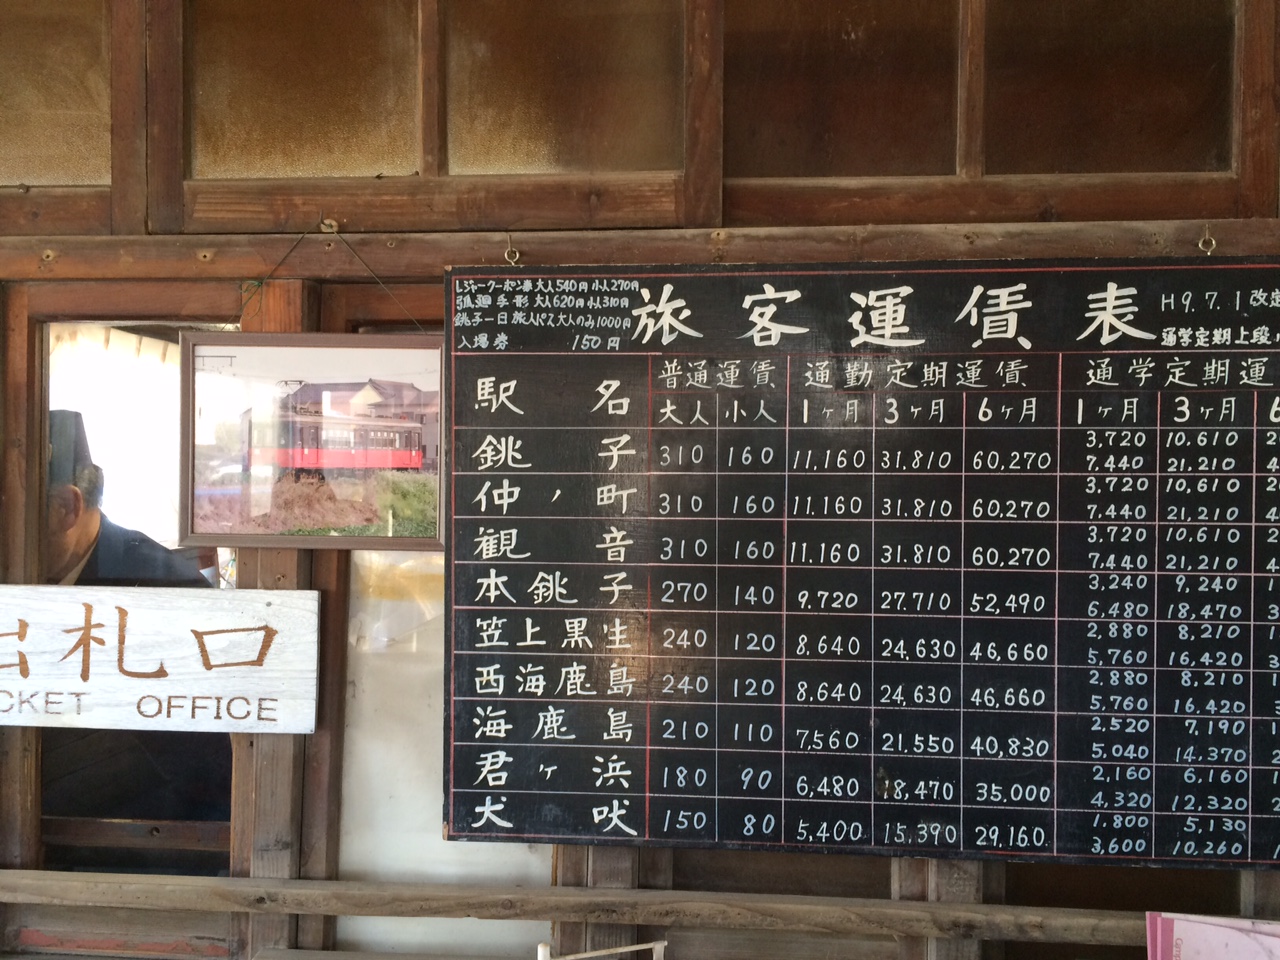 レジャークーポン券 大人540円 小人270円
弧廻手形 大人620円 小人310円
銚子一日旅人パス 大人のみ1000円
入場券 150円
旅客運賃表
H9.7.1改
通学定期 上段
駅名 普通運賃 通勤定期運賃 通学定期運
大人 小人 1ヶ月 3ヶ月 6ヶ月 1ヶ月 3ヶ月
銚子 310 160 11,160 31.810 60,270 3,720 10,610
7,440 21,210
仲ノ町 310 160 11,160 31.810 60,270 3,720 10,610
7,440 21,210
観音 310 160 11,160 31.810 60,270 3,720 10,610
7,440 21,210
本銚子 270 140 9.720 27.710 52,490 3,240 9,240
6,480 18,470
笠上黒生 240 120 8,640 24,630 46,660 2,880 8,210
5,760 16,420
西海鹿島 240 120 8,640 24,630 46,660 2,880 8,210
5,760 16.420
海鹿島 210 110 7,560 21.550 40,830 2,520 7,190
5,040 14,370
君ヶ浜 180 90 6,480 18,470 35.000 2,160 6,160
4,320 12,320
犬吠 150 80 5,400 15,390 29,160 1,800 5,130
3,600 10,260
出札口
CKET OFFICE